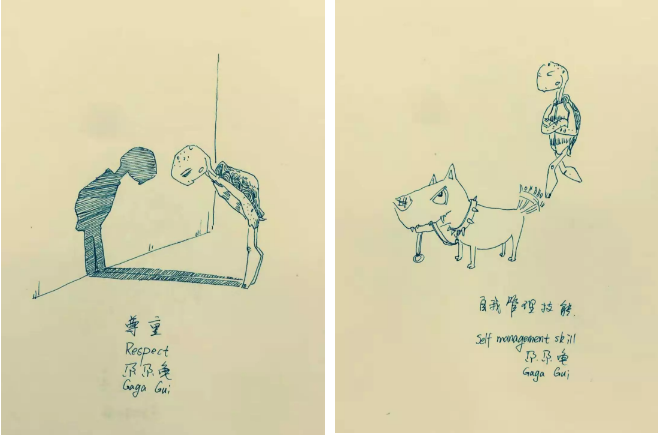 尊重
Respect
尕尕龟
Gaga Gui
自我管理技能
Self management skill
尕尕龟
Gaga Gui